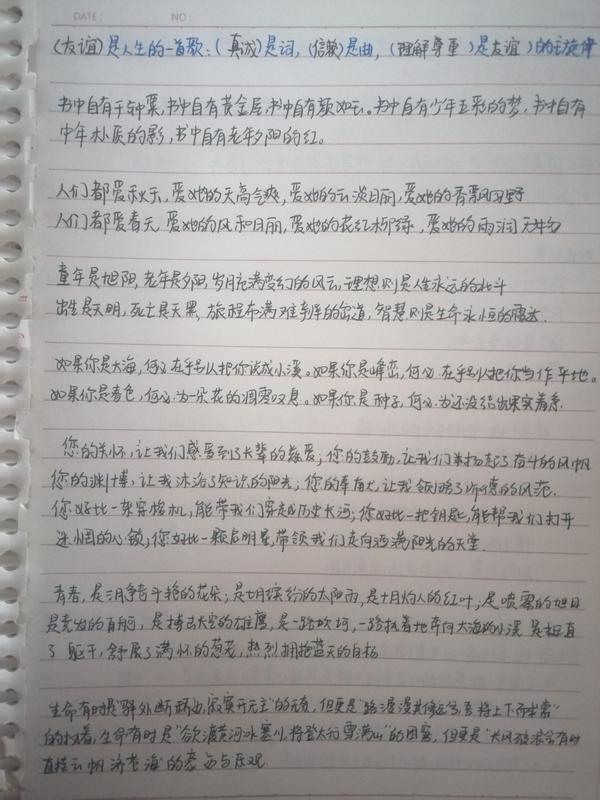 DATE: NO:
(友谊)是人生的一首歌:(真诚)是词,(信赖)是曲,(理解尊重)是友谊)的主旋律
书中自有千钟粟,书中自有黄金屋,书中自有颜如玉。书中自有少年五彩的梦,书中自有
中年朴质的影,书中自有老年夕阳的红。
人们都爱秋天,爱她的天高气爽,爱她的云淡日丽,爱她的香飘四野
人们都爱春天,爱她的风和日丽,爱她的花红柳绿,爱她的雨润万物
童年是旭阳,老年是夕阳,岁月充满变幻的风云,理想则是人生永远的北斗
出生是天明,死亡是天黑,旅程布满难辨的岔道,智慧则是生命永恒的雷达
如果你是大海,何必在乎别人把你说成小溪。如果你是峰峦,何必在乎别人把你当作平地。
如果你是春色,何必为一朵花的凋零叹息。如果你是种子,何必为还没结出果实着急
您的关怀,让我们感受到了长辈的慈爱;您的鼓励,让我们扬起了奋斗的风帆
您的渊博,让我沐浴了知识的阳光;您的奉献,让我领略了师德的风范.
您好比一架穿梭机,能带我们穿越历史长河;您好比一把钥匙,能帮我们打开
迷惘的心锁;您好比一颗启明星,带领我们走向洒满阳光的天堂.
青春,是三月争奇斗艳的花朵;是七月缤纷的太阳雨,是十月灼人的红叶;是喷雾的旭日
是竞发的百舸,是搏击大空的雄鹰,是一路坎坷,一路执着地奔向大海的小溪 是挺直
了躯干,舒展了满怀的葱茏,热烈拥抱蓝天的白杨
生命有时是"驿外断桥边,寂寞开无主"的无奈,但更是"路漫漫其修远兮,吾将上下而求索"
的执着,生命有时是"欲渡黄河冰塞川,将登太行雪满山"的困窘,但更是"长风破浪会有时
直挂云帆济沧海"的豪迈与乐观.